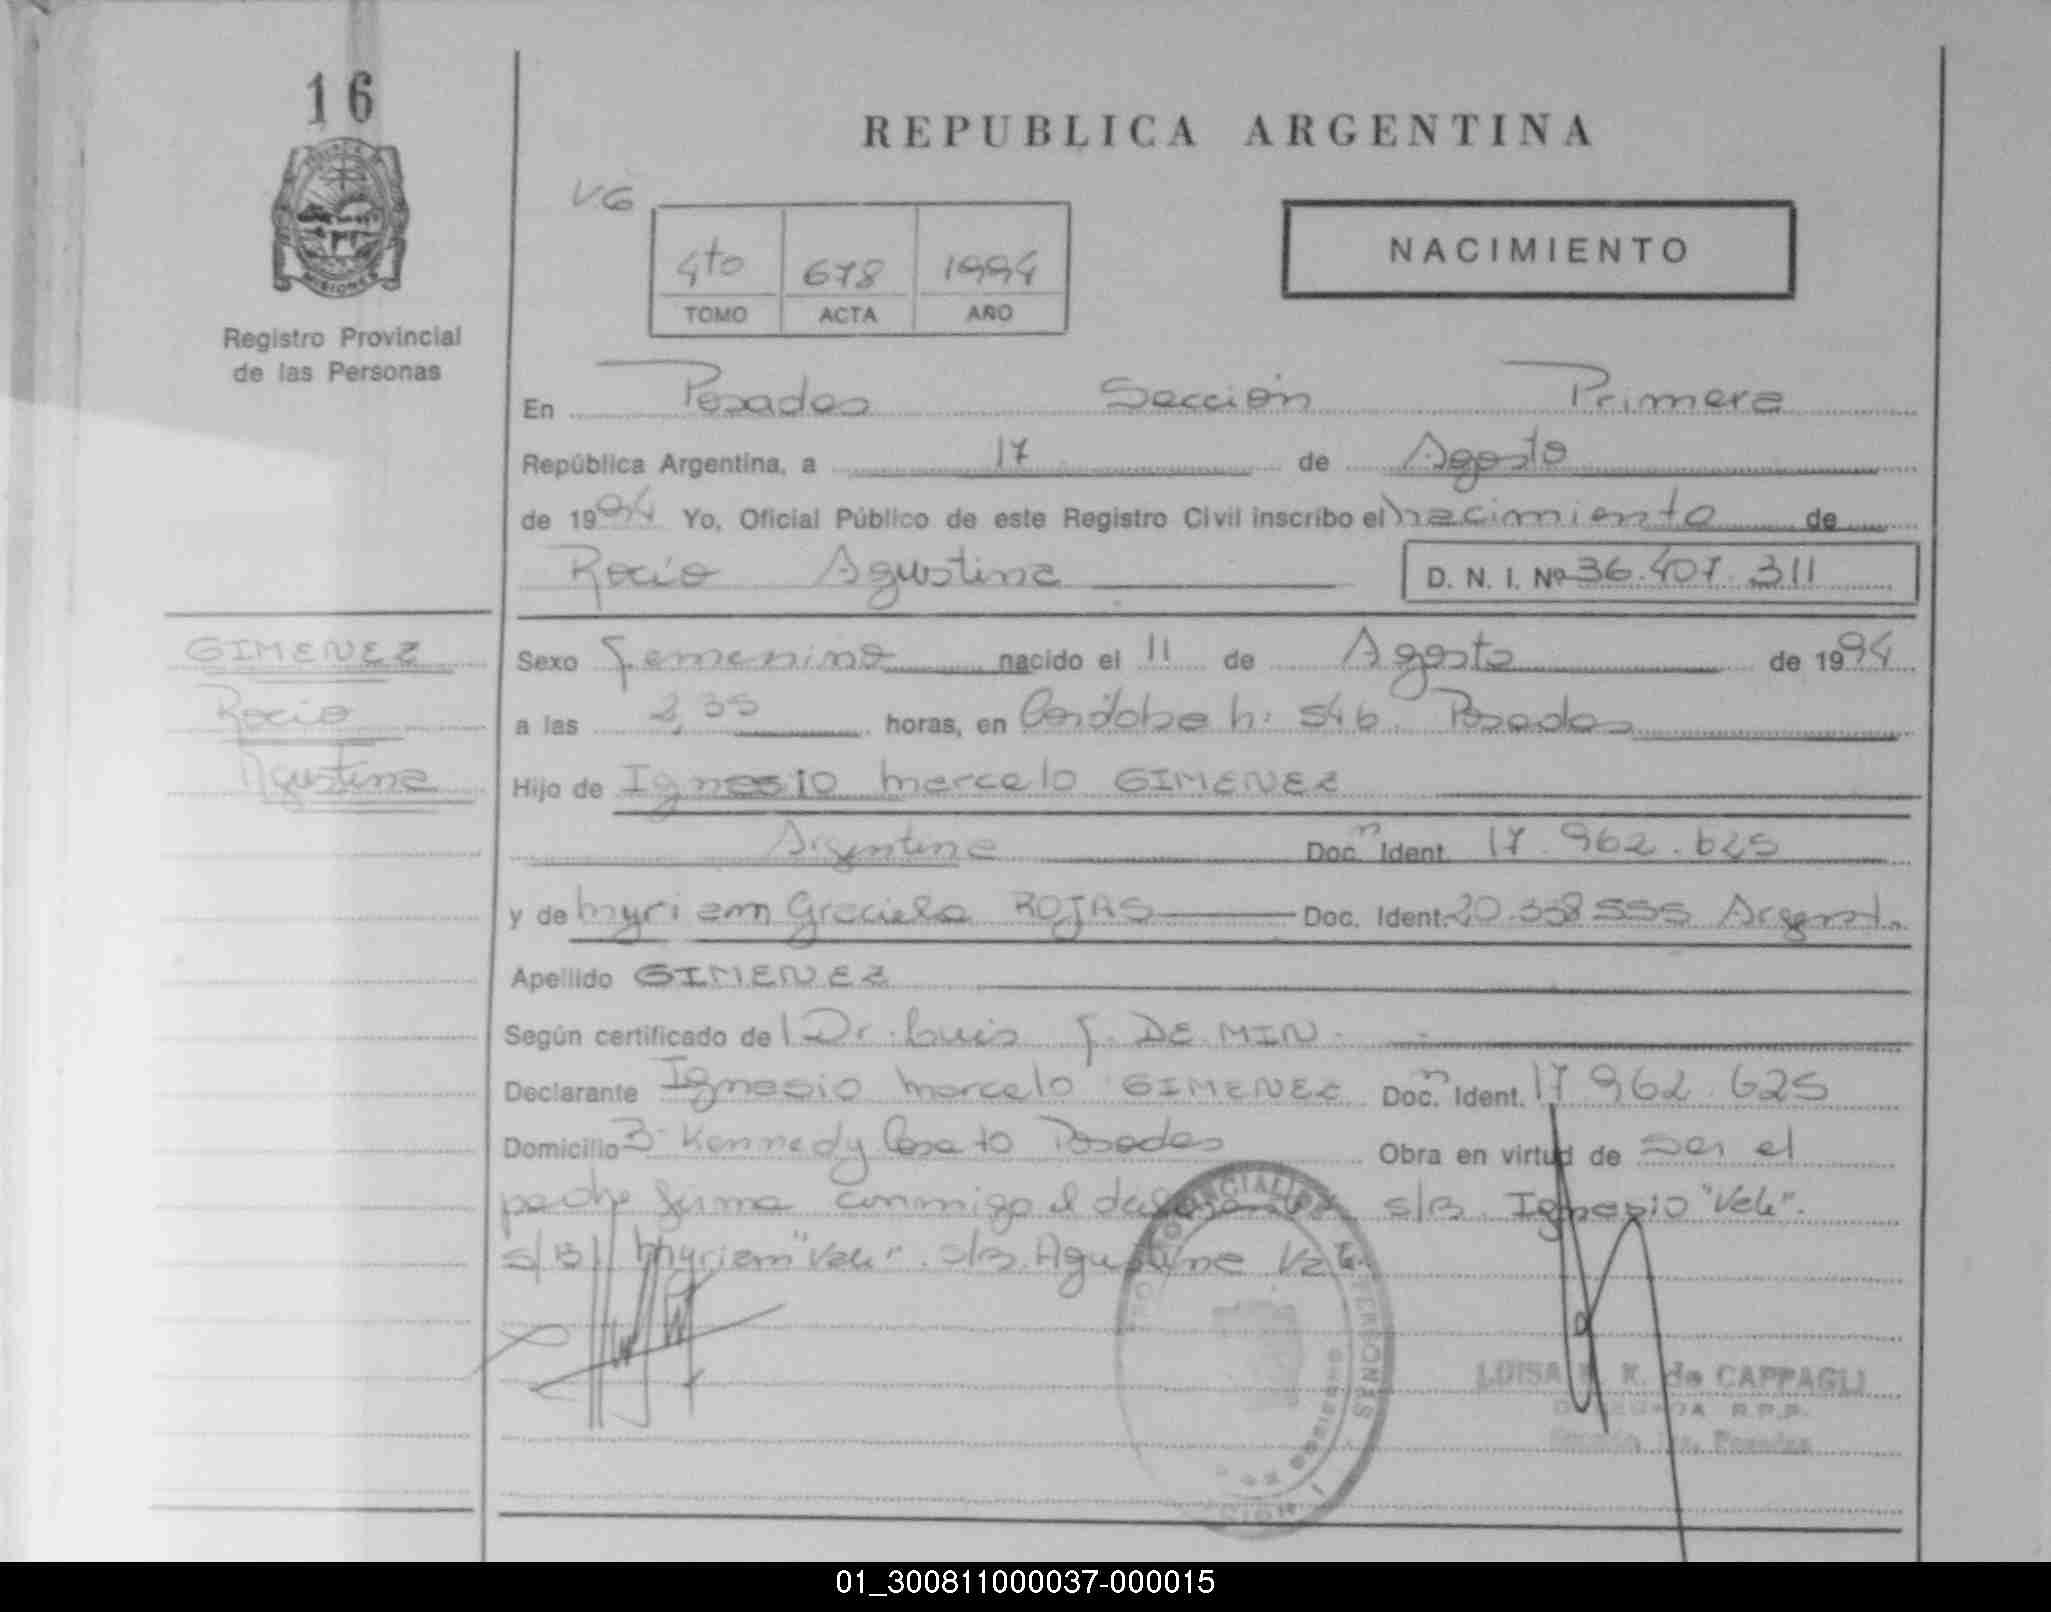 16
MISIONES
Registro Provincial
de las Personas
REPUBLICA ARGENTINA
V6
4to 678 1994
TOMO ACTA AÑO
NACIMIENTO
En Posadas Sección Primera
República Argentina, a 17 de Agosto
de 1994 Yo, Oficial Público de este Registro Civil inscribo el nacimiento de
Rocío Agustina D. N. I. Nº 36.407.311
GIMENEZ
Rocio
Agustina
Sexo femenino nacido el 11 de Agosto de 1994
a las 2,35 horas, en Córdoba h: 546. Posadas
Hijo de Ignasio Marcelo GIMENEZ
Argentina Doc. Ident. 17.962.625
y de Myriam Graciela ROJAS Doc. Ident. 20.338.555 Argent.
Apellido GIMENEZ
Según certificado de Dr. Luis F. DE MIN.
Declarante Ignasio Marcelo GIMENEZ Doc. Ident. 17.962.625
Domicilio Bº Kennedy Posadas Obra en virtud de ser el
padre firma conmigo el s/B. Ignasio "Vale".
s/B Myriam "Vale". s/B. Agustina
PERSONAS
LUISA K. de CAPPAGLI
R.P.P.
Posadas
01_300811000037-000015